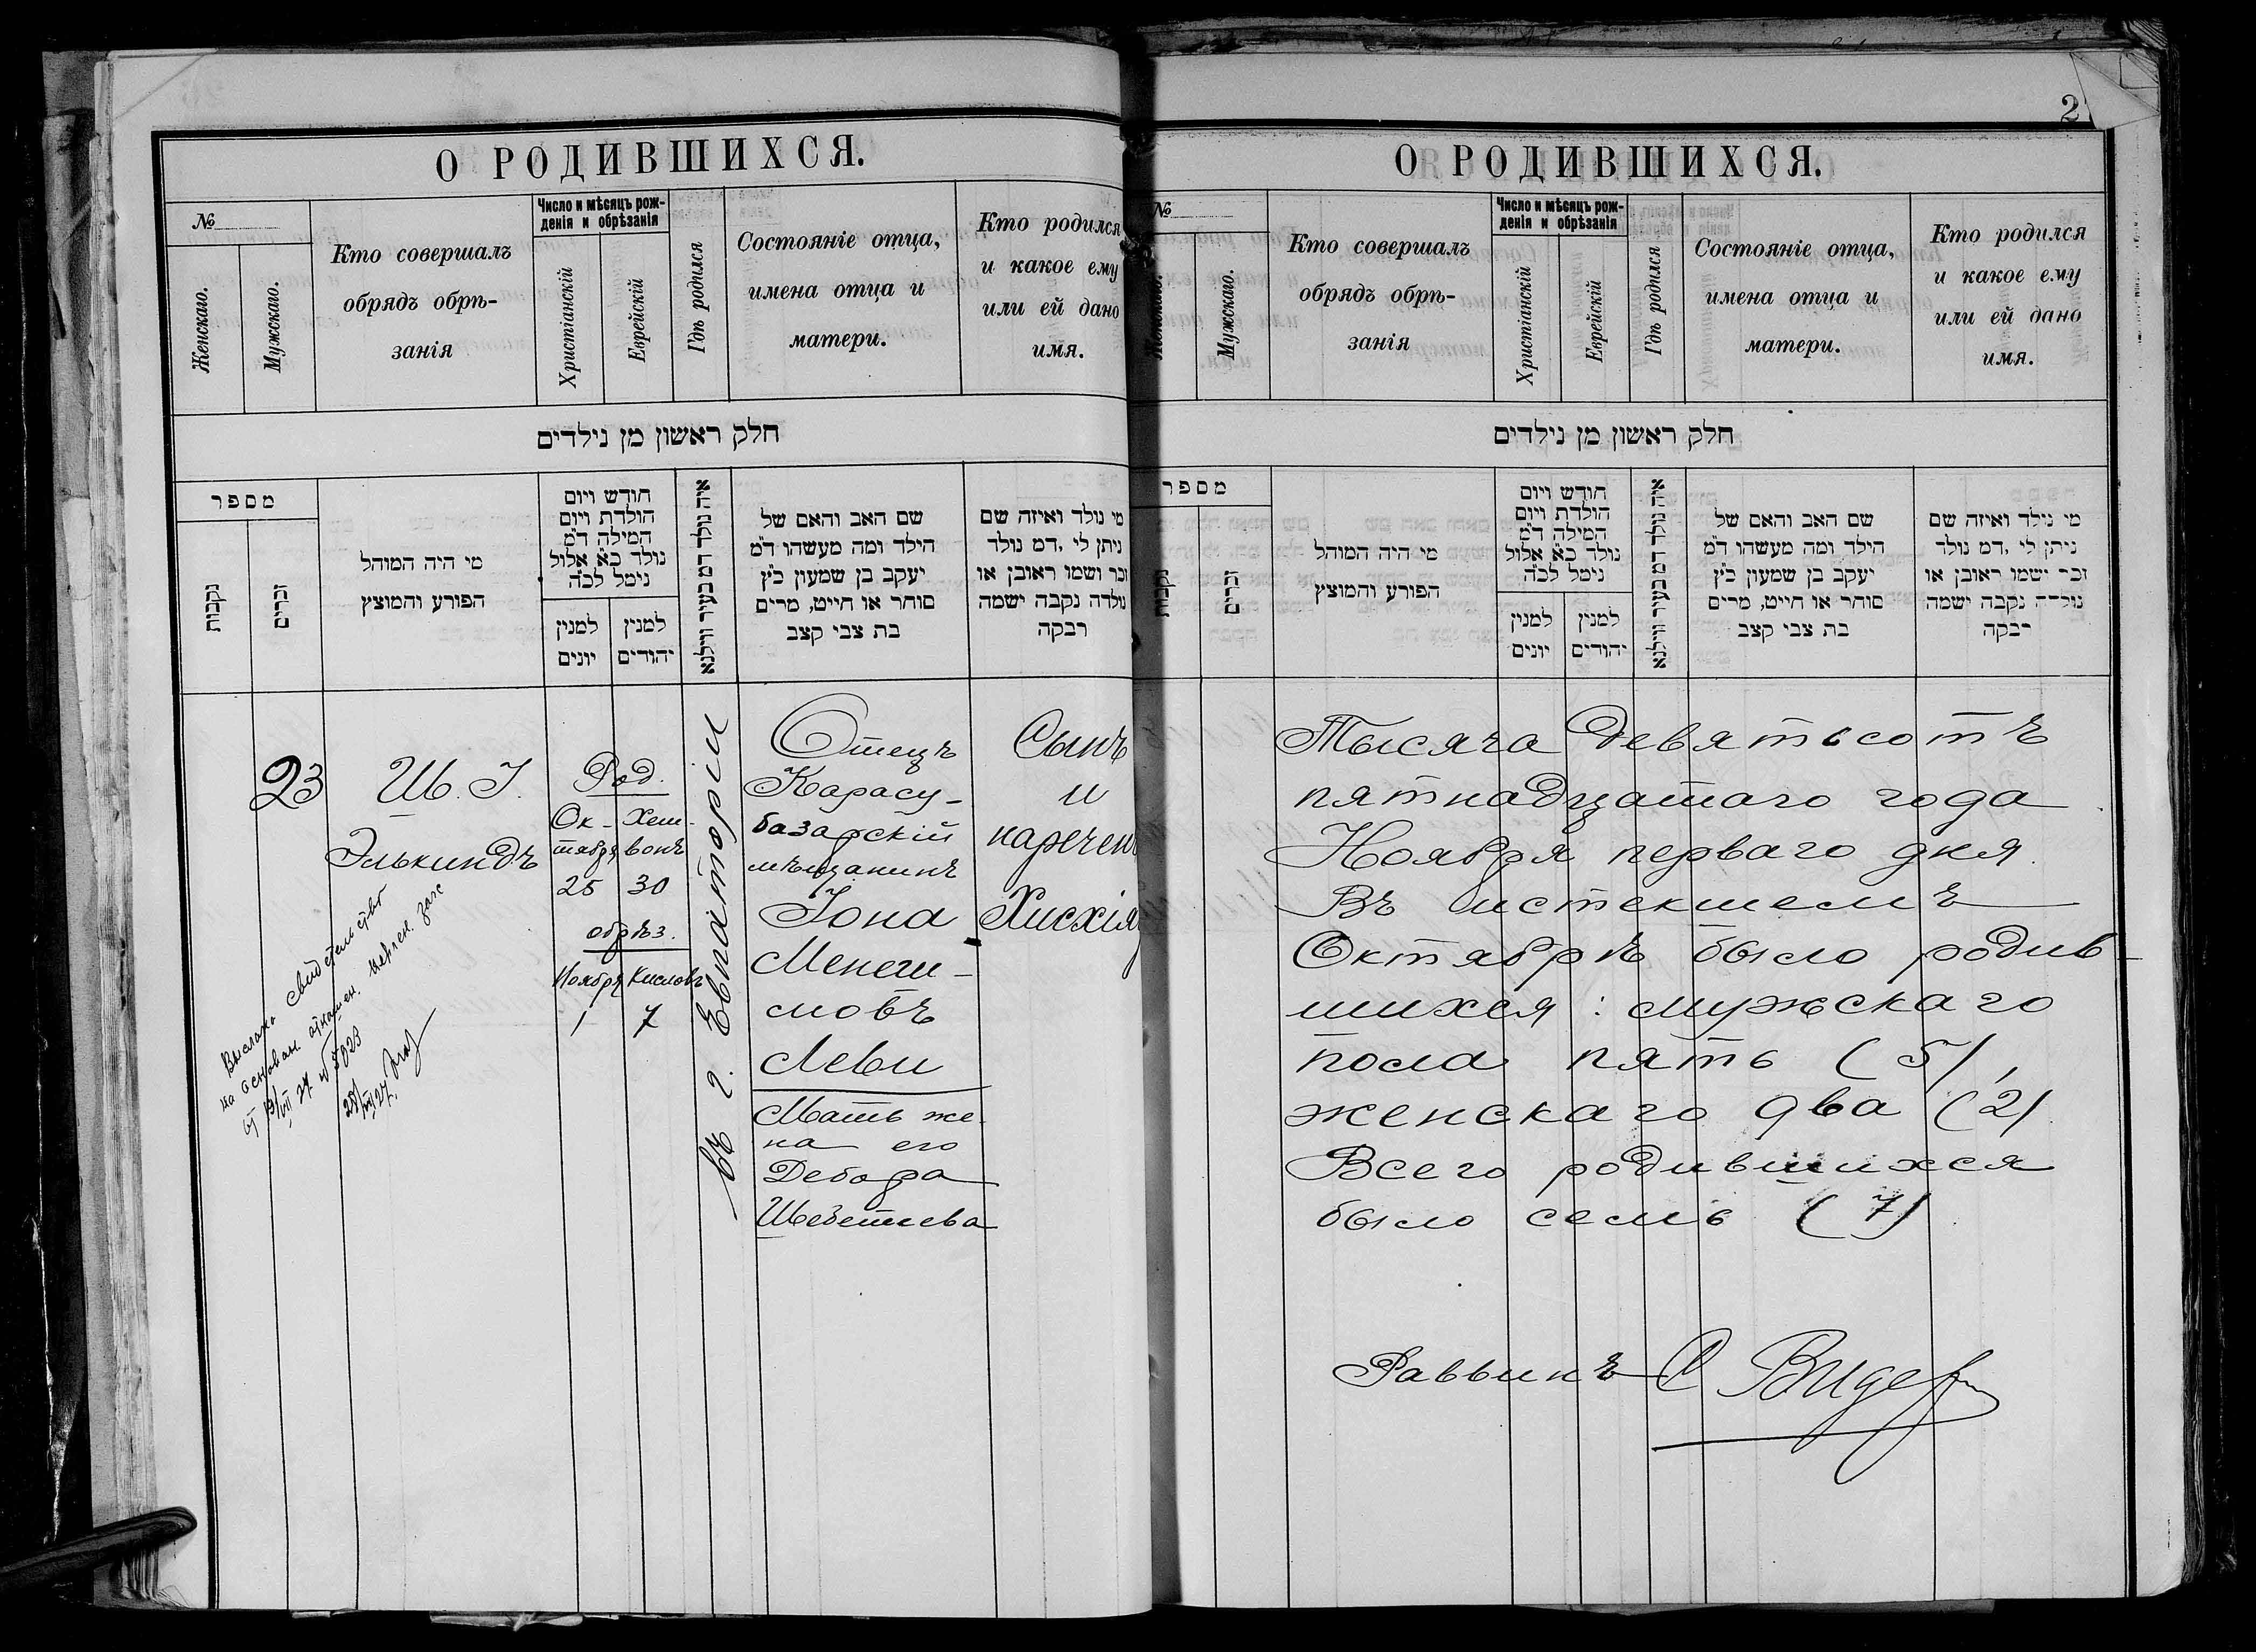 О РОДИВШИХСЯ.
№
Женскаго.
Мужскаго.
Кто совершалъ
обрядъ обрѣ-
занія
Число и мѣсяцъ рож-
денія и обрѣзанія
Христіанскій
Еврейскій
Гдѣ родился
Состояніе отца,
имена отца и
матери.
Кто родился
и какое ему
или ей дано
имя.
חלק ראשון מן נילדים
מספר
נקבות
זכרים
מי היה המוהל
הפורע והמוצץ
חודש ויום
הולדת ויום
המילה ד״מ
נולד כ״א אלול
נימל לכ״ה
למנין
יונים
למנין
יהודים
איה נולד דמ בעיר ווילנא
שם האב והאם של
הילד ומה מעשהו ד״מ
יעקב בן שמעון כ״ץ
סוחר או חייט, מרים
בת צבי קצב
מי נולד ואיזה שם
ניתן לי ,דמ נולד
זכר ושמו ראובן או
נולדה נקבה ישמה
רבקה
23
Ш. I.
Элькиндъ
Род.
Ок-
тября
25
Хеш-
вонъ
30
обрѣз.
Ноября
1
Кисловъ
7
въ г. Евпаторіи
Отецъ
Карасу-
базарскій
мѣщанинъ
Іона
Менаши-
мовъ
Леви
Мать же-
на его
Дебора
Сынъ
и
нареченъ
Хисхія
Выслано свидетельство
на основан. отношен.
28/VII 27.
2
О РОДИВШИХСЯ.
№
Женскаго.
Мужскаго.
Кто совершалъ
обрядъ обрѣ-
занія
Число и мѣсяцъ рож-
денія и обрѣзанія
Христіанскій
Еврейскій
Гдѣ родился
Состояніе отца,
имена отца и
матери.
Кто родился
и какое ему
или ей дано
имя.
חלק ראשון מן נילדים
מספר
נקבות
זכרים
מי היה המוהל
הפורע והמוצץ
חודש ויום
הולדת ויום
המילה ד״מ
נולד כ״א אלול
נימל לכ״ה
למנין
יונים
למנין
יהודים
איה נולד דמ בעיר ווילנא
שם האב והאם של
הילד ומה מעשהו ד״מ
יעקב בן שמעון כ״ץ
סוחר או חייט, מרים
בת צבי קצב
מי נילד ואיזה שם
ניתן לי ,דמ נולד
זכר ישמו ראובן או
נולדה נקבה ישמה
רבקה
Тысяча девятьсотъ
пятнадцатаго года
Ноября перваго дня.
Въ истекшемъ
Октябрѣ было родив-
шихся: мужскаго
пола пять (5),
женскаго два (2)
Всего родившихся
было семь (7)
Раввинъ